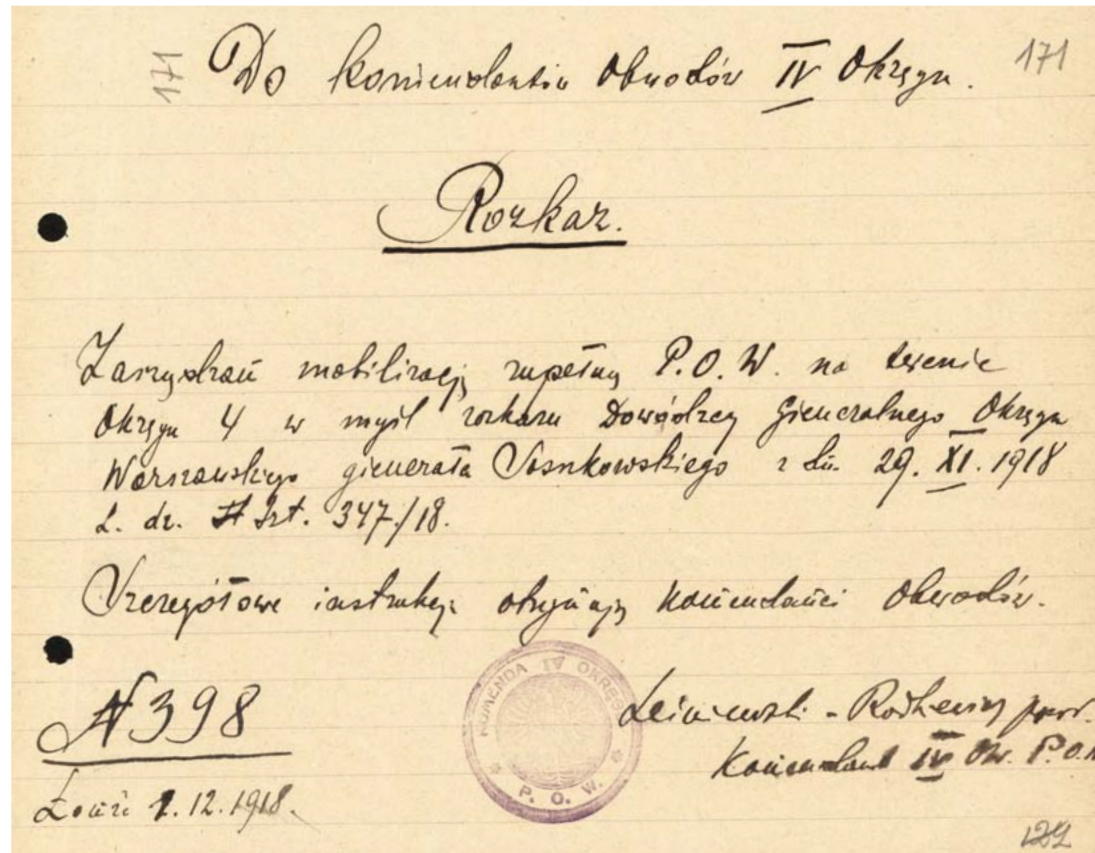 171
171
Do komendantów Obwodów IV Okręgu.
Rozkaz.
Zarządzam mobilizację zupełną P.O.W. na terenie
Okręgu 4 w myśl rozkazu Dowódzcy Gieneralnego Okręgu
Warszawskiego gienerała Sosnkowskiego z dn. 29. XI. 1918
L. dz. Szt. 347./18.
Szczegółowe instrukcje otrzymają Komendanci Obwodów.
N 398
KOMENDA IV OKRĘGU
P. O. W.
por.
Komendant IV Okr. P.O.W
1.12.1918.